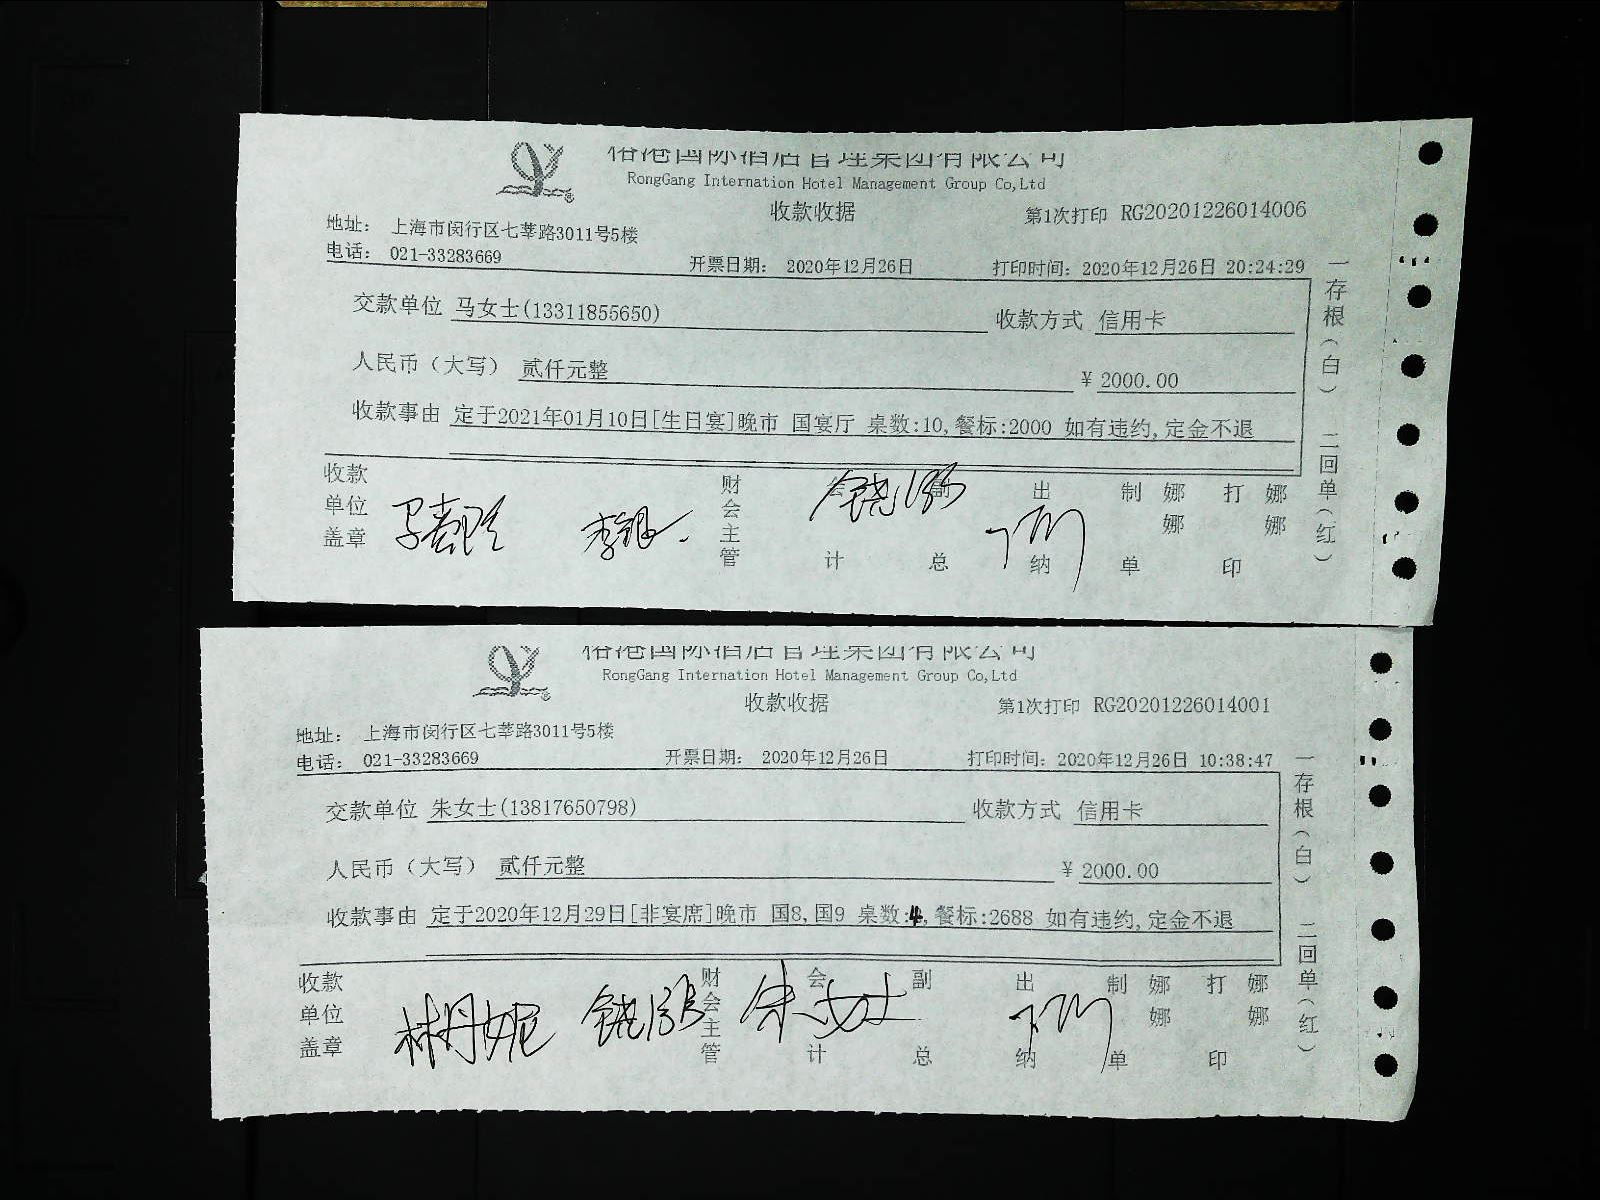 RongGang Internation Hotel Management Group Co,Ltd
收款收据 第1次打印 RG20201226014006
地址： 上海市闵行区七莘路3011号5楼
电话： 021-33283669 开票日期： 2020年12月26日 打印时间：2020年12月26日 20:24:29
交款单位 马女士(13311855650) 收款方式 信用卡
人民币（大写） 贰仟元整 ¥ 2000.00
收款事由 定于2021年01月10日[生日宴]晚市 国宴厅 桌数:10,餐标:2000 如有违约,定金不退
收款单位盖章 财会主管 会计 副总 出纳 制单 娜娜 打印 娜娜
一存根（白） 二回单（红）
RongGang Internation Hotel Management Group Co,Ltd
收款收据 第1次打印 RG20201226014001
地址： 上海市闵行区七莘路3011号5楼
电话： 021-33283669 开票日期： 2020年12月26日 打印时间：2020年12月26日 10:38:47
交款单位 朱女士(13817650798) 收款方式 信用卡
人民币（大写） 贰仟元整 ¥ 2000.00
收款事由 定于2020年12月29日[非宴席]晚市 国8,国9 桌数:4,餐标:2688 如有违约,定金不退
收款单位盖章 林丹妮 朱女士 财会主管 会计 副总 出纳 制单 娜娜 打印 娜娜
一存根（白） 二回单（红）